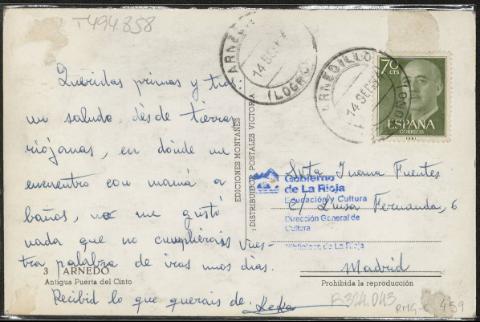 T494858
Queridas primas y tias:
un saludo, dès de tierras
riojanas, en donde me
encuentro con mamá a
baños, no me gustó
nada que no cumplierais vues-
tra palabra de iros unos dias.
Recibid lo que querais de
3 ARNEDO
Antigua Puerta del Cinto
EDICIONES MONTAÑES
DISTRIBUCIONES POSTALES VICTORIA
ARNEDILLO
(LOGROÑO)
70 CTS
ESPAÑA
CORREOS
Srta Juana Fuentes
c/ Luisa Fernanda, 6
Madrid
Gobierno
de La Rioja
Educación y Cultura
Dirección General de
Cultura
Biblioteca de La Rioja
Prohibida la reproducción
459